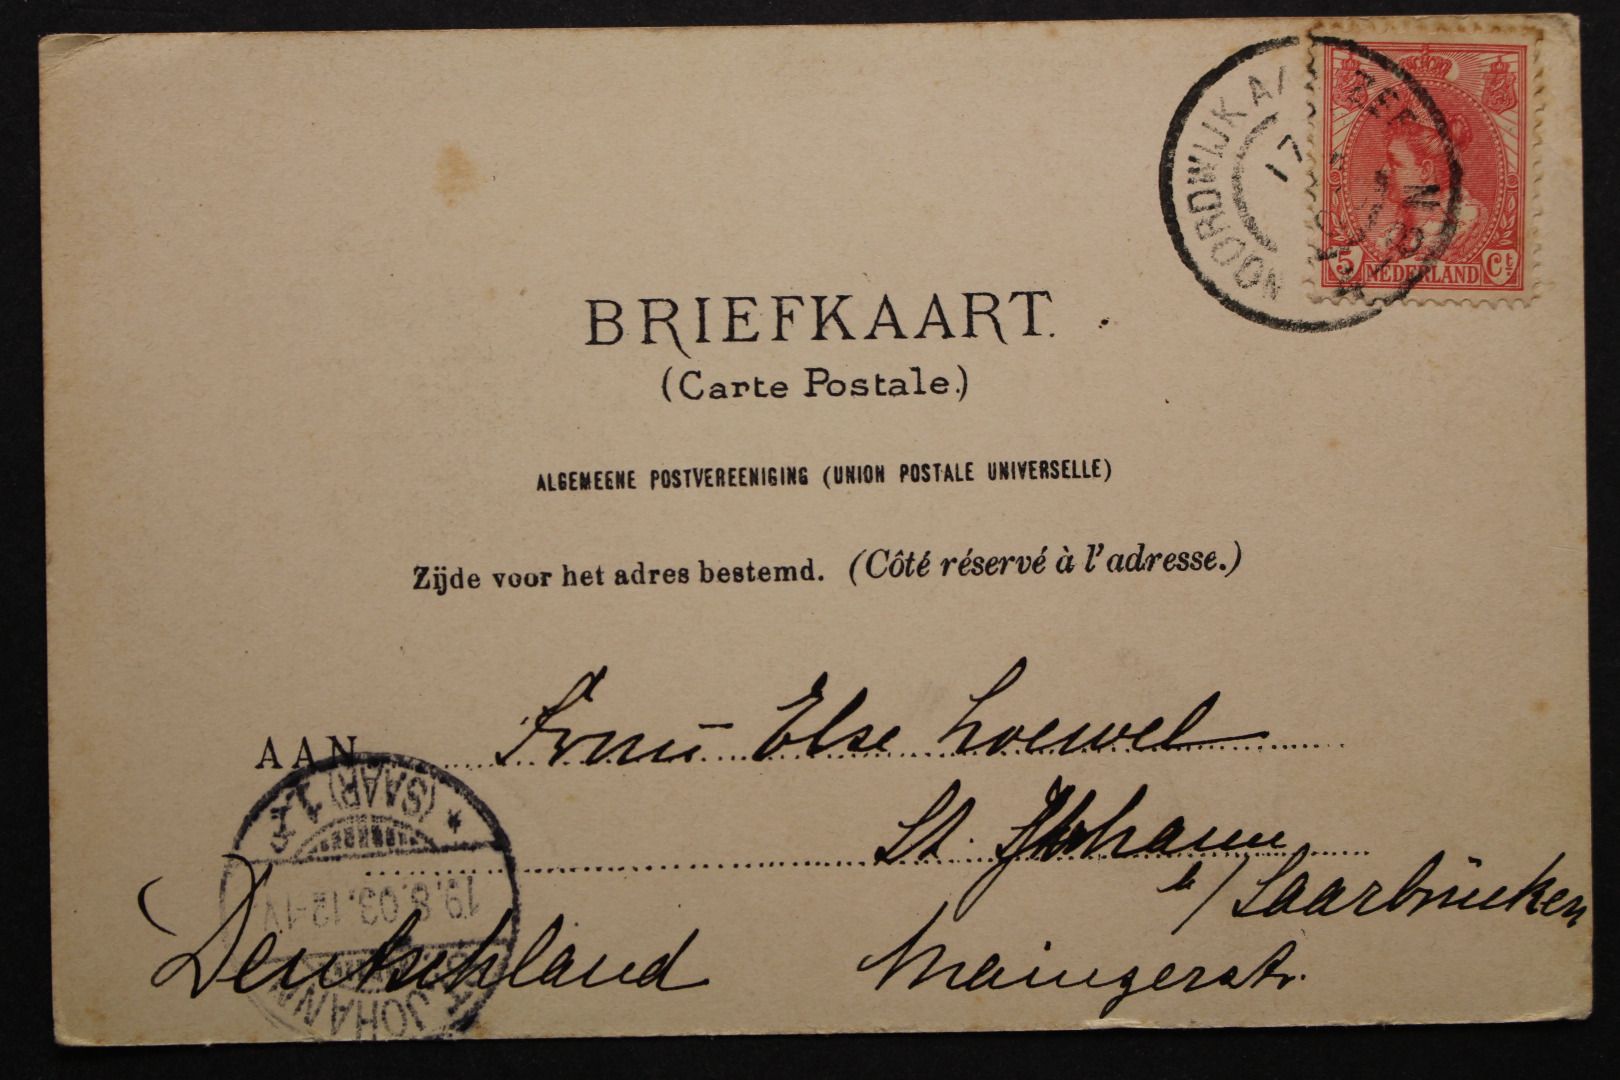 NOORDWIJK A/ ZEE
17
5 NEDERLAND Ct
BRIEFKAART.
(Carte Postale.)
ALGEMEENE POSTVEREENIGING (UNION POSTALE UNIVERSELLE)
Zijde voor het adres bestemd. (Côté réservé à l'adresse.)
AAN Else Loewel
St. Johann
b/ Saarbrücken
Deutschland Mainzerstr.
(SAAR) 1
19.8.03.12-1V
ST. JOHANN